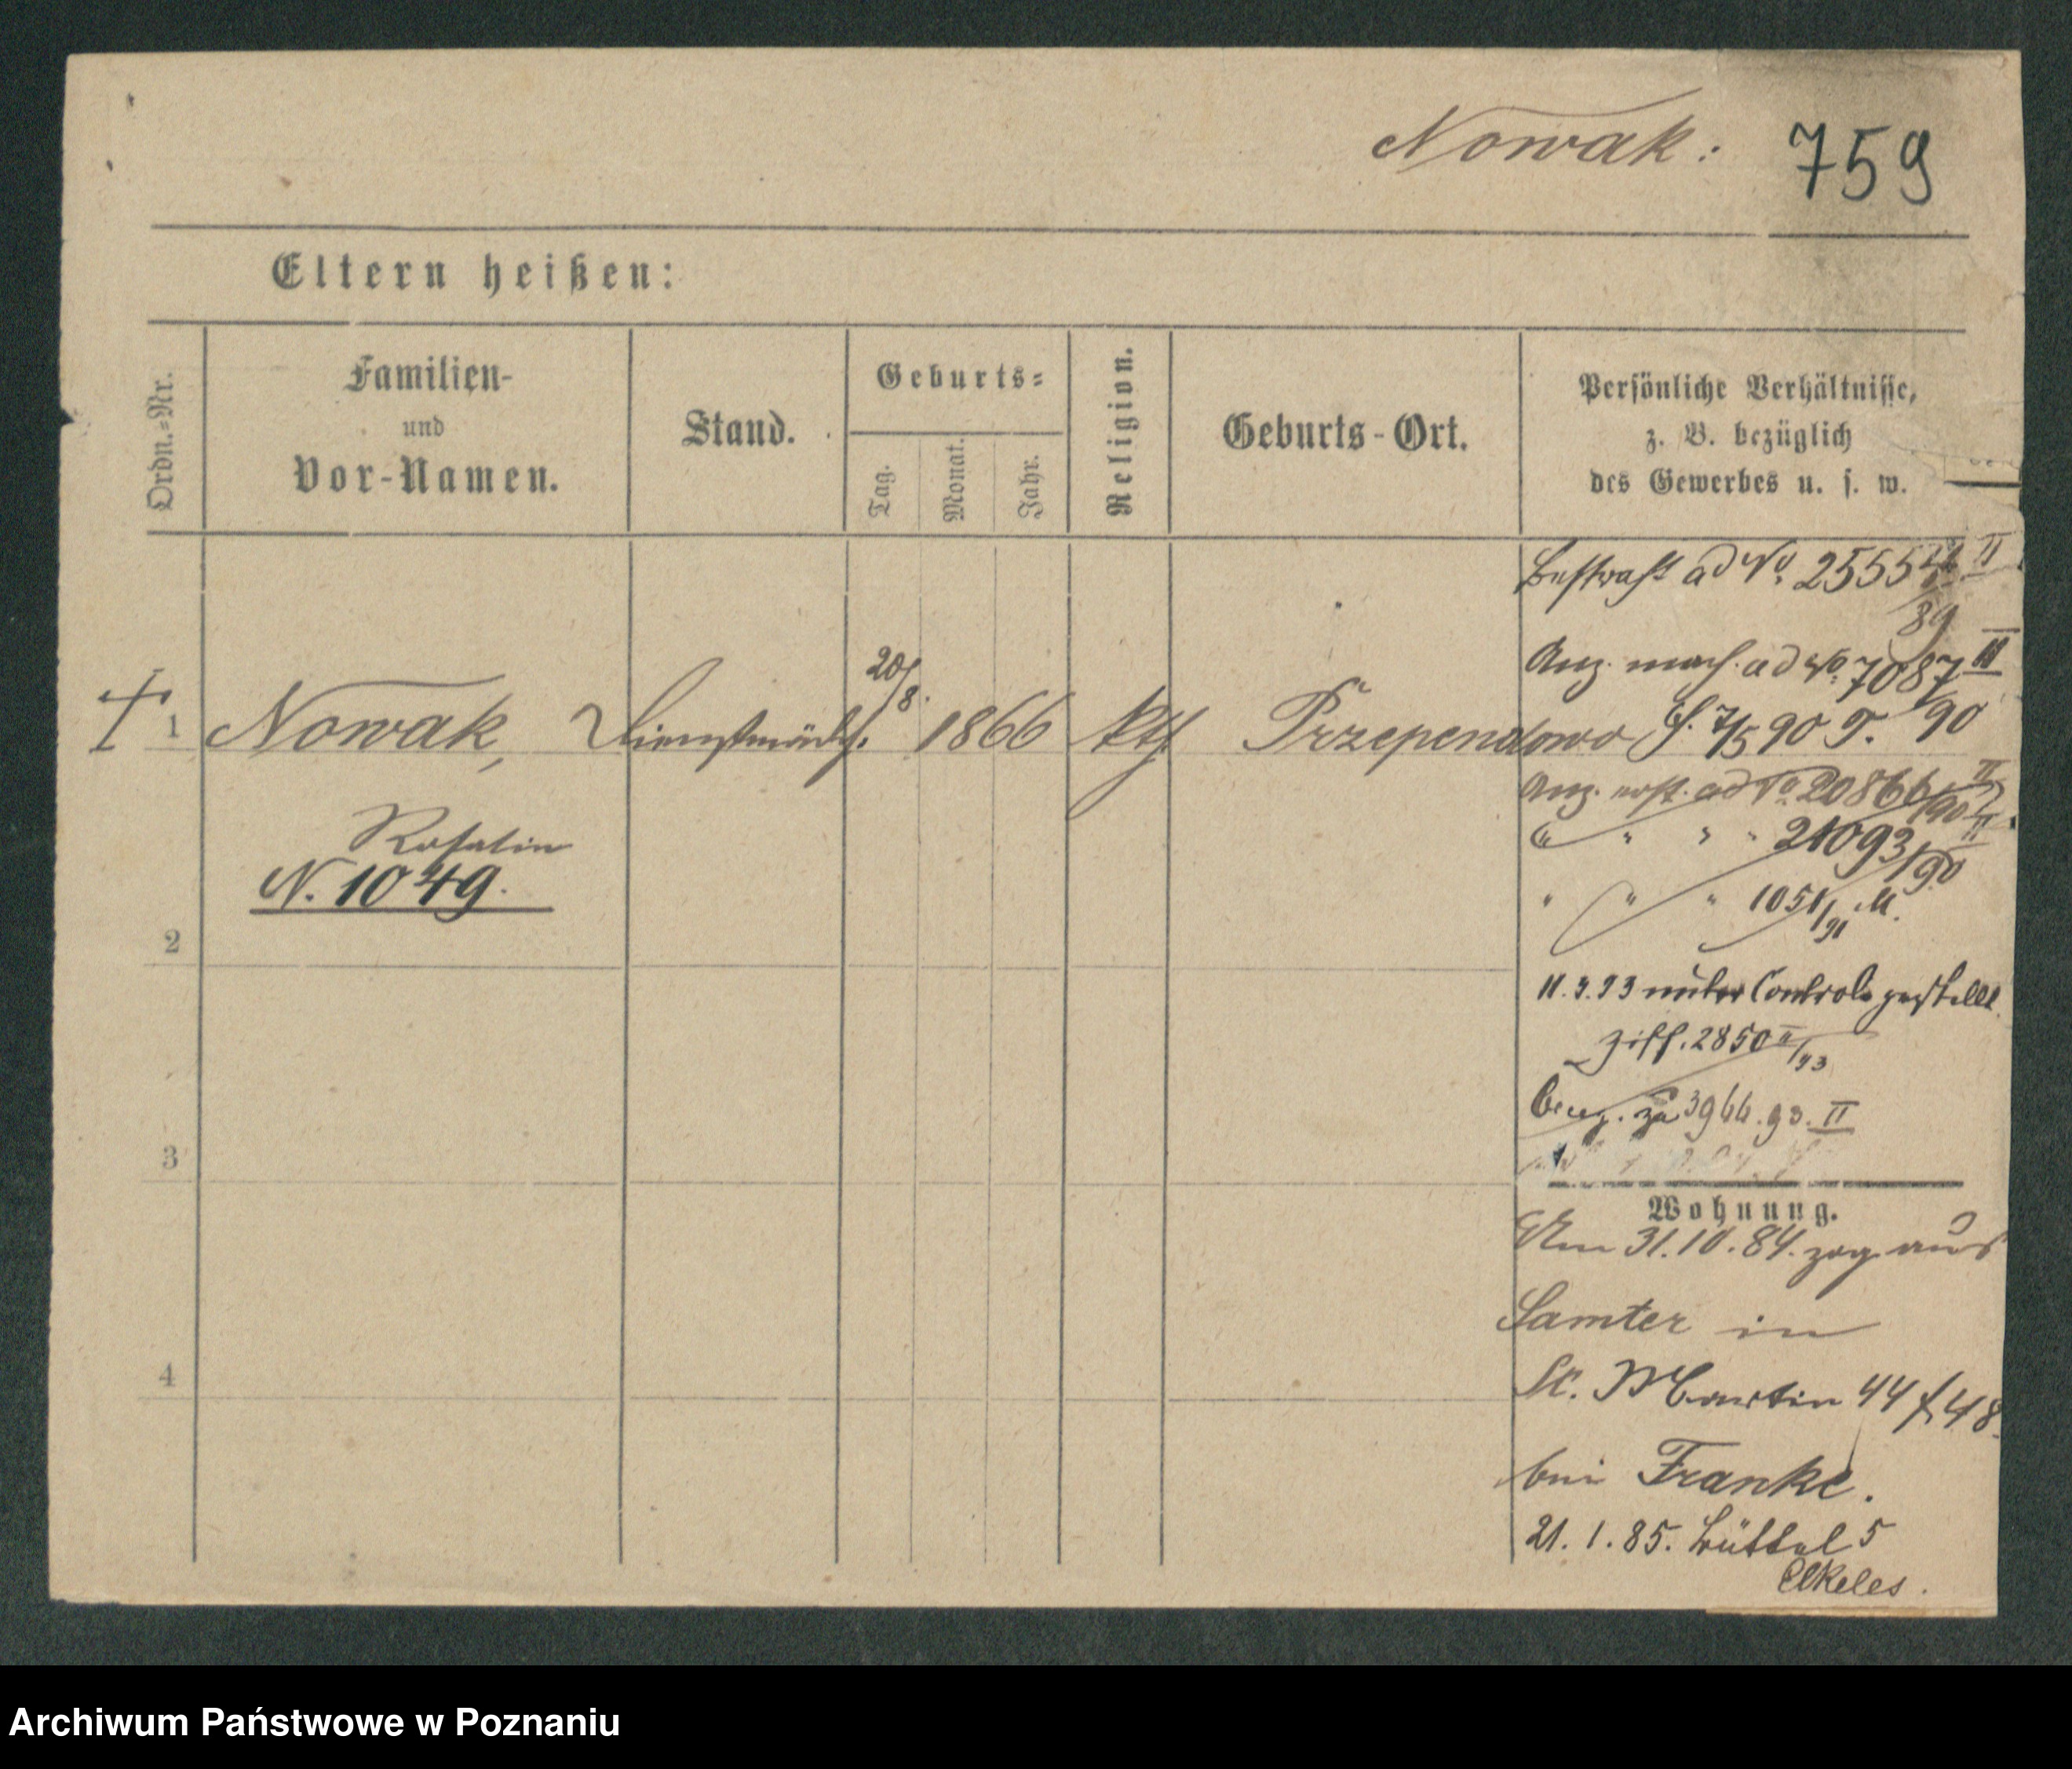 Nowak: 759
Eltern heißen:
Ordn.-Nr.
Familien-
und
Vor-Namen.
Stand.
Geburts-
Tag.
Monat.
Jahr.
Religion.
Geburts-Ort.
Persönliche Verhältnisse,
z. B. bezüglich
des Gewerbes u. s. w.
Bestraft ad No. 2555 II
89
Anz. ad No. 7087 II
90
1 Nowak, Dienstmädch. 20/8. 1866 kth Przependowo 7/5 90
Rosalin
N. 1049.
Anz. ad No 20866/90 II
" " " " 21093/90 II
" " " 1051/91 M.
2
11.3.93 unter Controle gestellt
Ziff. 2850 II/93
zu 3966.93. II
3
Wohnung.
Am 31.10.84. zog aus
Samter in
St. Martin 44 48
bei Franke.
4
21. 1. 85. Büttel 5
Elkeles.
Archiwum Państwowe w Poznaniu